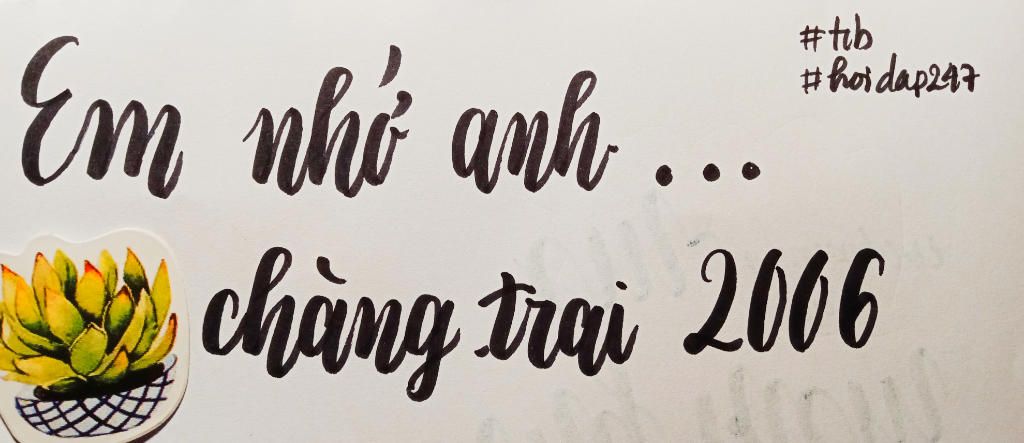 #tib
#hoidap247
Em nhớ anh ...
chàng trai 2006